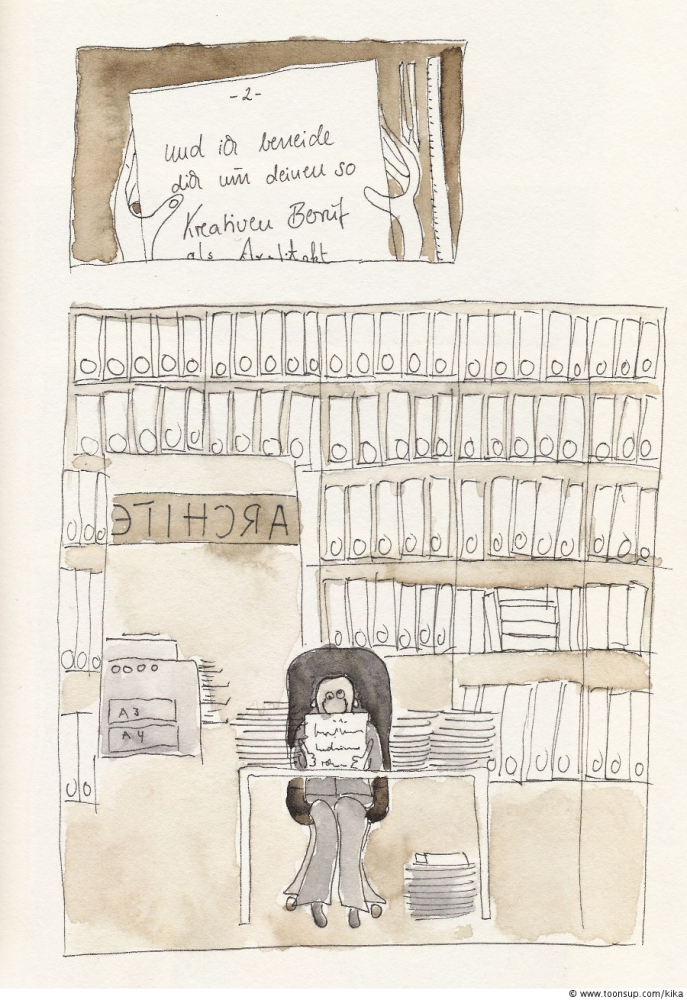 -2-
und ich beneide
dich um deinen so
Kreativen Beruf
als Architekt
ARCHITE
A3
A4
© www.toonsup.com/kika